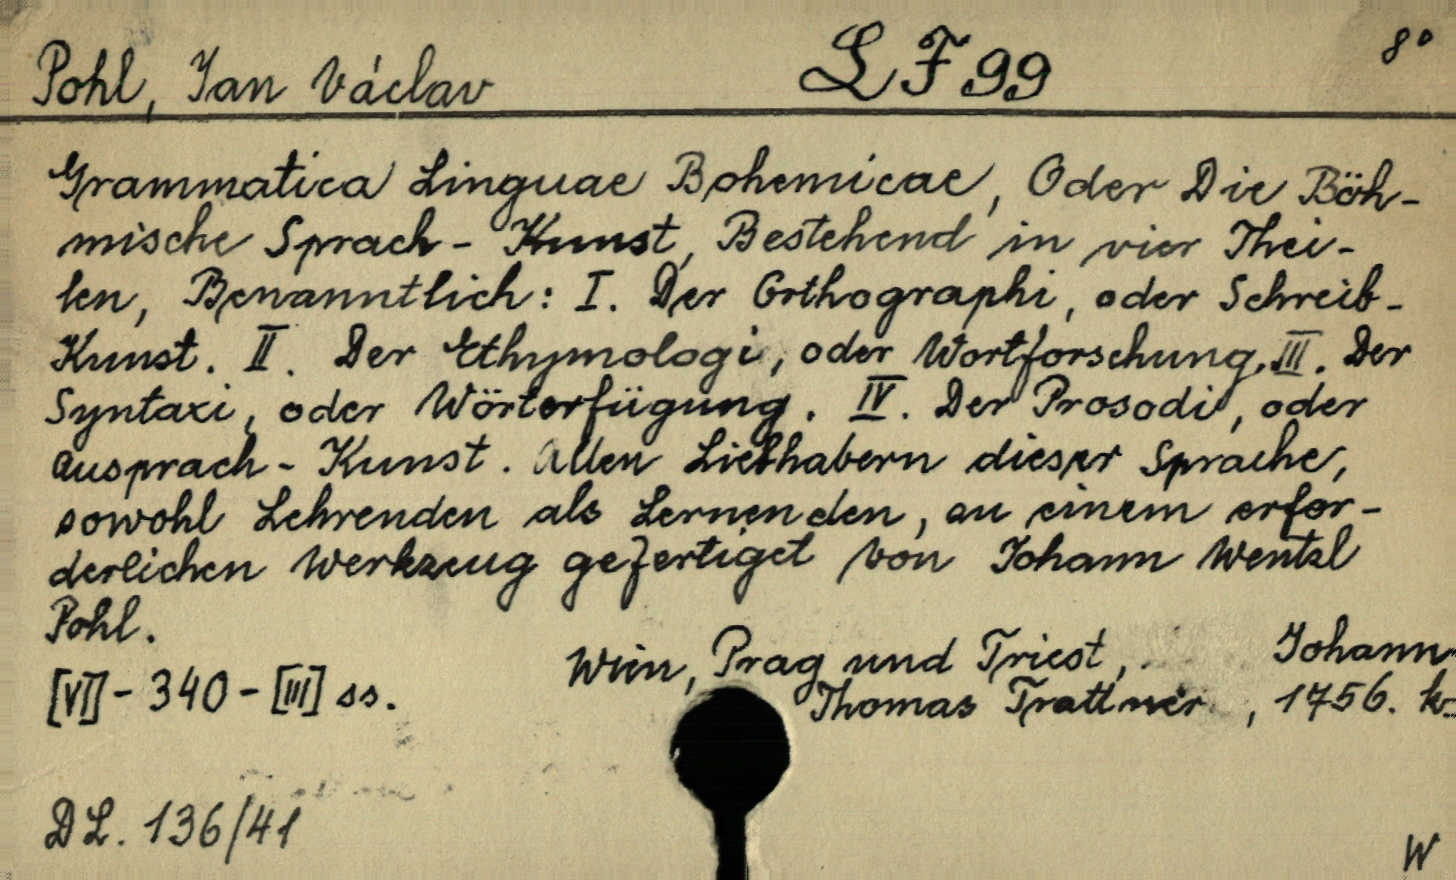 Pohl, Jan Václav LF 99 8°
Grammatica Linguae Bohemicae, Oder Die Böh-
mische Sprach - Kunst, Bestehend in vier Thei-
len, Benanntlich: I. Der Orthographi, oder Schreib-
Kunst. II. Der Ethymologi, oder Wortforschung. III. Der
Syntaxi, oder Wörterfügung. IV. Der Prosodi, oder
Ausprach - Kunst. Allen Liebhabern dieser Sprache,
sowohl Lehrenden als Lernenden, an einem erfor-
derlichen Werkzeug gefertiget von Johann Wentzl
Pohl.
Wien, Prag und Triest, Johann
[VI] - 340 - [III] ss. Thomas Trattner, 1756. k
DL. 136/41
W